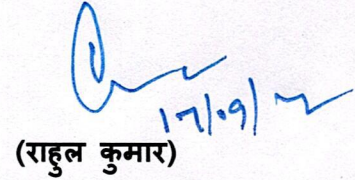 17/09/
(राहुल कुमार)